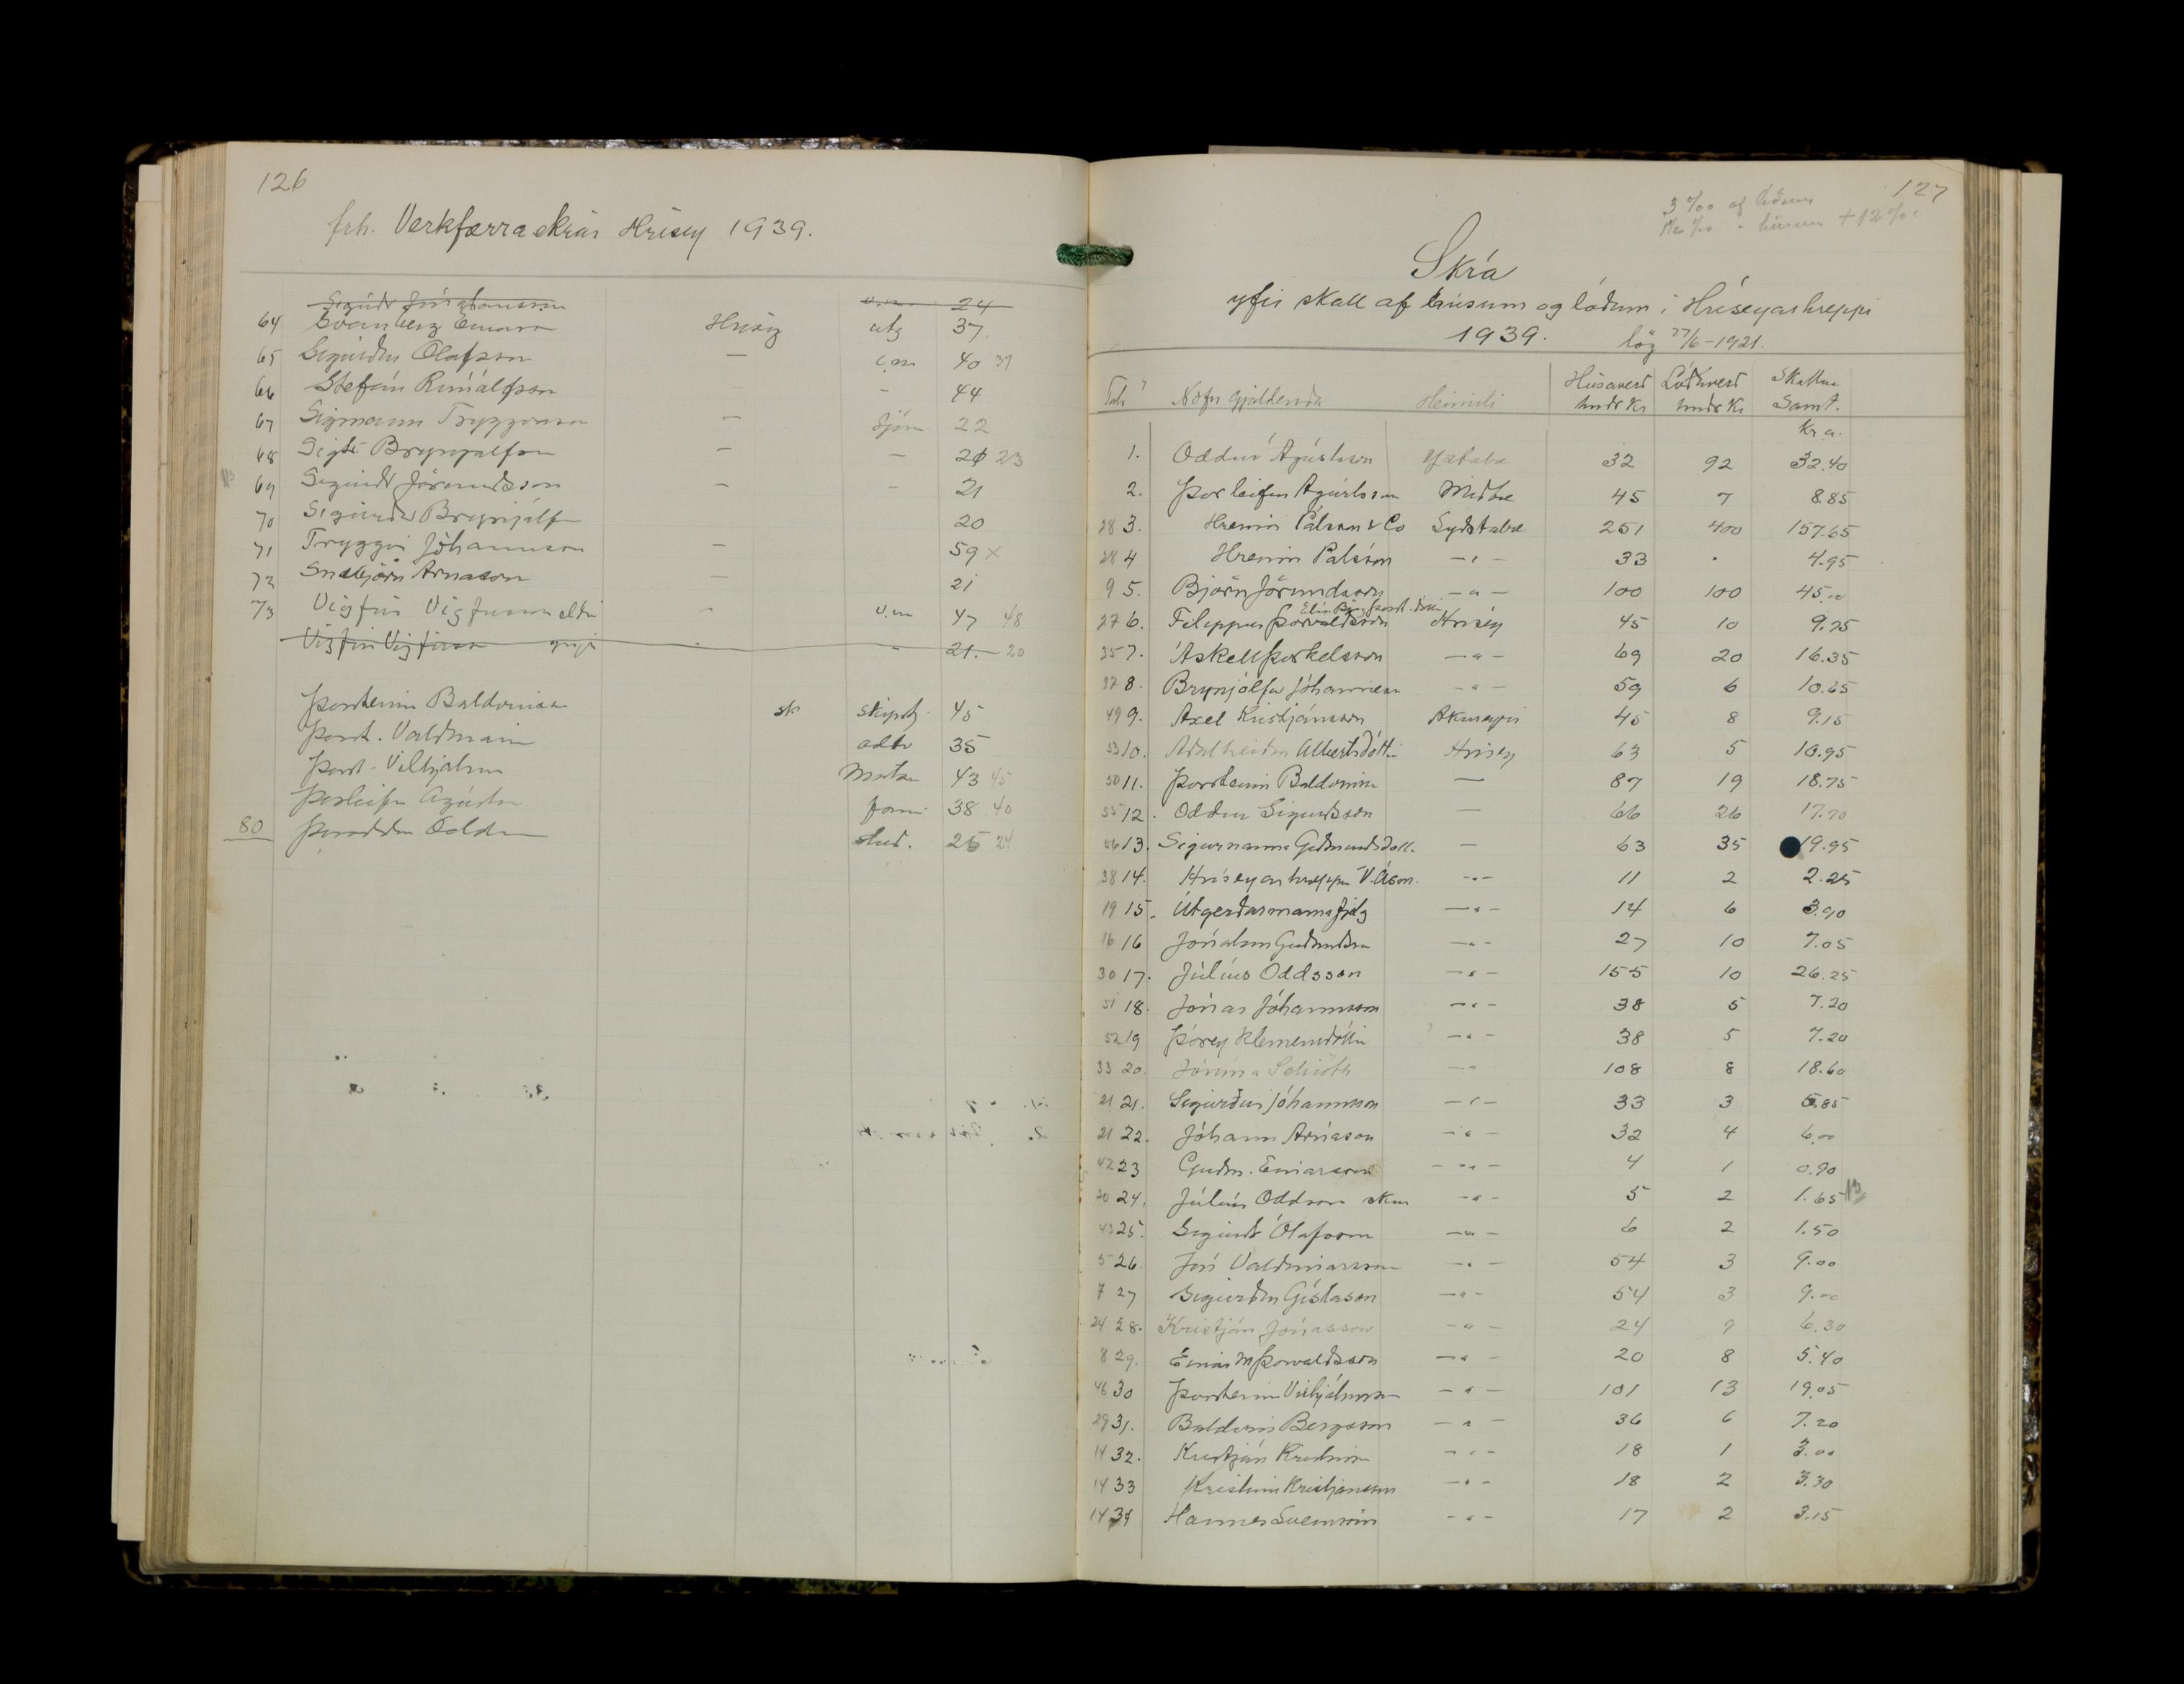 126
frh. Verkfærraskrár Hrísey 1939.
24
64 Svanberg Einarsson Hrísey utg 37
65 Sigurður Ólafsson — v.m 40 39
66 Stefán Rúnálfsson - 44
67 Sigmann Tryggvason — Sjóm 22
68 Sigtr. Brynjólfsson — — 20 23
69 Sigurdr Jörundsson — - 21
70 Sigurdur Brynjólfs 20
71 Tryggvi Jóhannsson — 59 x
72 Snæbjörn Árnason — 21
73 Vigfús Vigfússon eldri - v.m 47 48
Vigfús Vigfússon yngri - - 21 20
Þorsteinn Baldvinsson sk skipstj. 45
Þorst. Valdimars 35
Þorst. Vilhjálms 43 45
Þorleifur Ágústs form 38 40
80 Þóroddur Odds stud. 25 24
127
3 ‰ af lóðum
+ 12 %
Skrá
yfir skatt af húsum og lóðum í Hríseyarhreppi
1939. lög 27/6-1921.
Tala Nöfn gjaldenda Heimili Húsaverd hndr Kr Lóðaverd hndr Kr Skattur Samt.
Kr a.
1. Oddur Ágústsson Yztabæ 32 92 32.40
2. Þorleifur Ágústsson Miðbæ 45 7 8.85
28 3. Hreinn Pálsson & Co Syðstabæ 251 400 157.65
28 4 Hreinn Pálsson —"— 33 · 4.95
9 5. Björn Jörundsson —"— 100 100 45.00
27 6. Filippus Þorvaldsson Hrísey 45 10 9.75
35 7. Áskell Þorkelsson —"— 69 20 16.35
37 8. Brynjólfur Jóhannesson —"— 59 6 10.65
49 9. Axel Kristjánsson Akureyri 45 8 9.15
53 10. Aðalheiður Albertsdóttir Hrísey 63 5 10.95
50 11. Þorsteinn Baldvinss — 87 19 18.75
55 12. Oddur Sigurdsson — 66 26 17.70
56 13. Sigurnanna Guðmundsdótt. — 63 35 19.95
38 14. Hríseyarhreppur —"— 11 2 2.25
19 15. Útgerðarmannafjelg —"— 14 6 3.90
16 16 Jónatan Guðmundsson —"— 27 10 7.05
30 17. Júlíus Oddsson —"— 155 10 26.25
51 18. Jónas Jóhannsson —"— 38 5 7.20
52 19 Þórey Klemensdóttir —"— 38 5 7.20
33 20. Jónína Schiöth —"— 108 8 18.60
21 21. Sigurður Jóhannsson —"— 33 3 5.85
21 22. Jóhann Árnason —"— 32 4 6.00
42 23 Guðm. Einarsson —"— 4 1 0.90
30 24. Júlíus Oddsson —"— 5 2 1.65
43 25. Sigurdr Ólafsson —"— 6 2 1.50
5 26. Jón Valdimarsson —"— 54 3 9.00
7 27 Sigurður Gíslason —"— 54 3 9.00
24 28. Kristján Jónasson —"— 24 9 6.30
8 29. Einar M Þorvaldsson —"— 20 8 5.40
46 30 Þorsteinn Vilhjálmsson —"— 101 13 19.05
29 31. Baldvin Bergsson —"— 36 6 7.20
14 32. Kristján Kristinss —"— 18 1 3.00
14 33 Kristinn Kristjánsson —"— 18 2 3.30
14 34 Hannes Sveinsson —"— 17 2 3.15